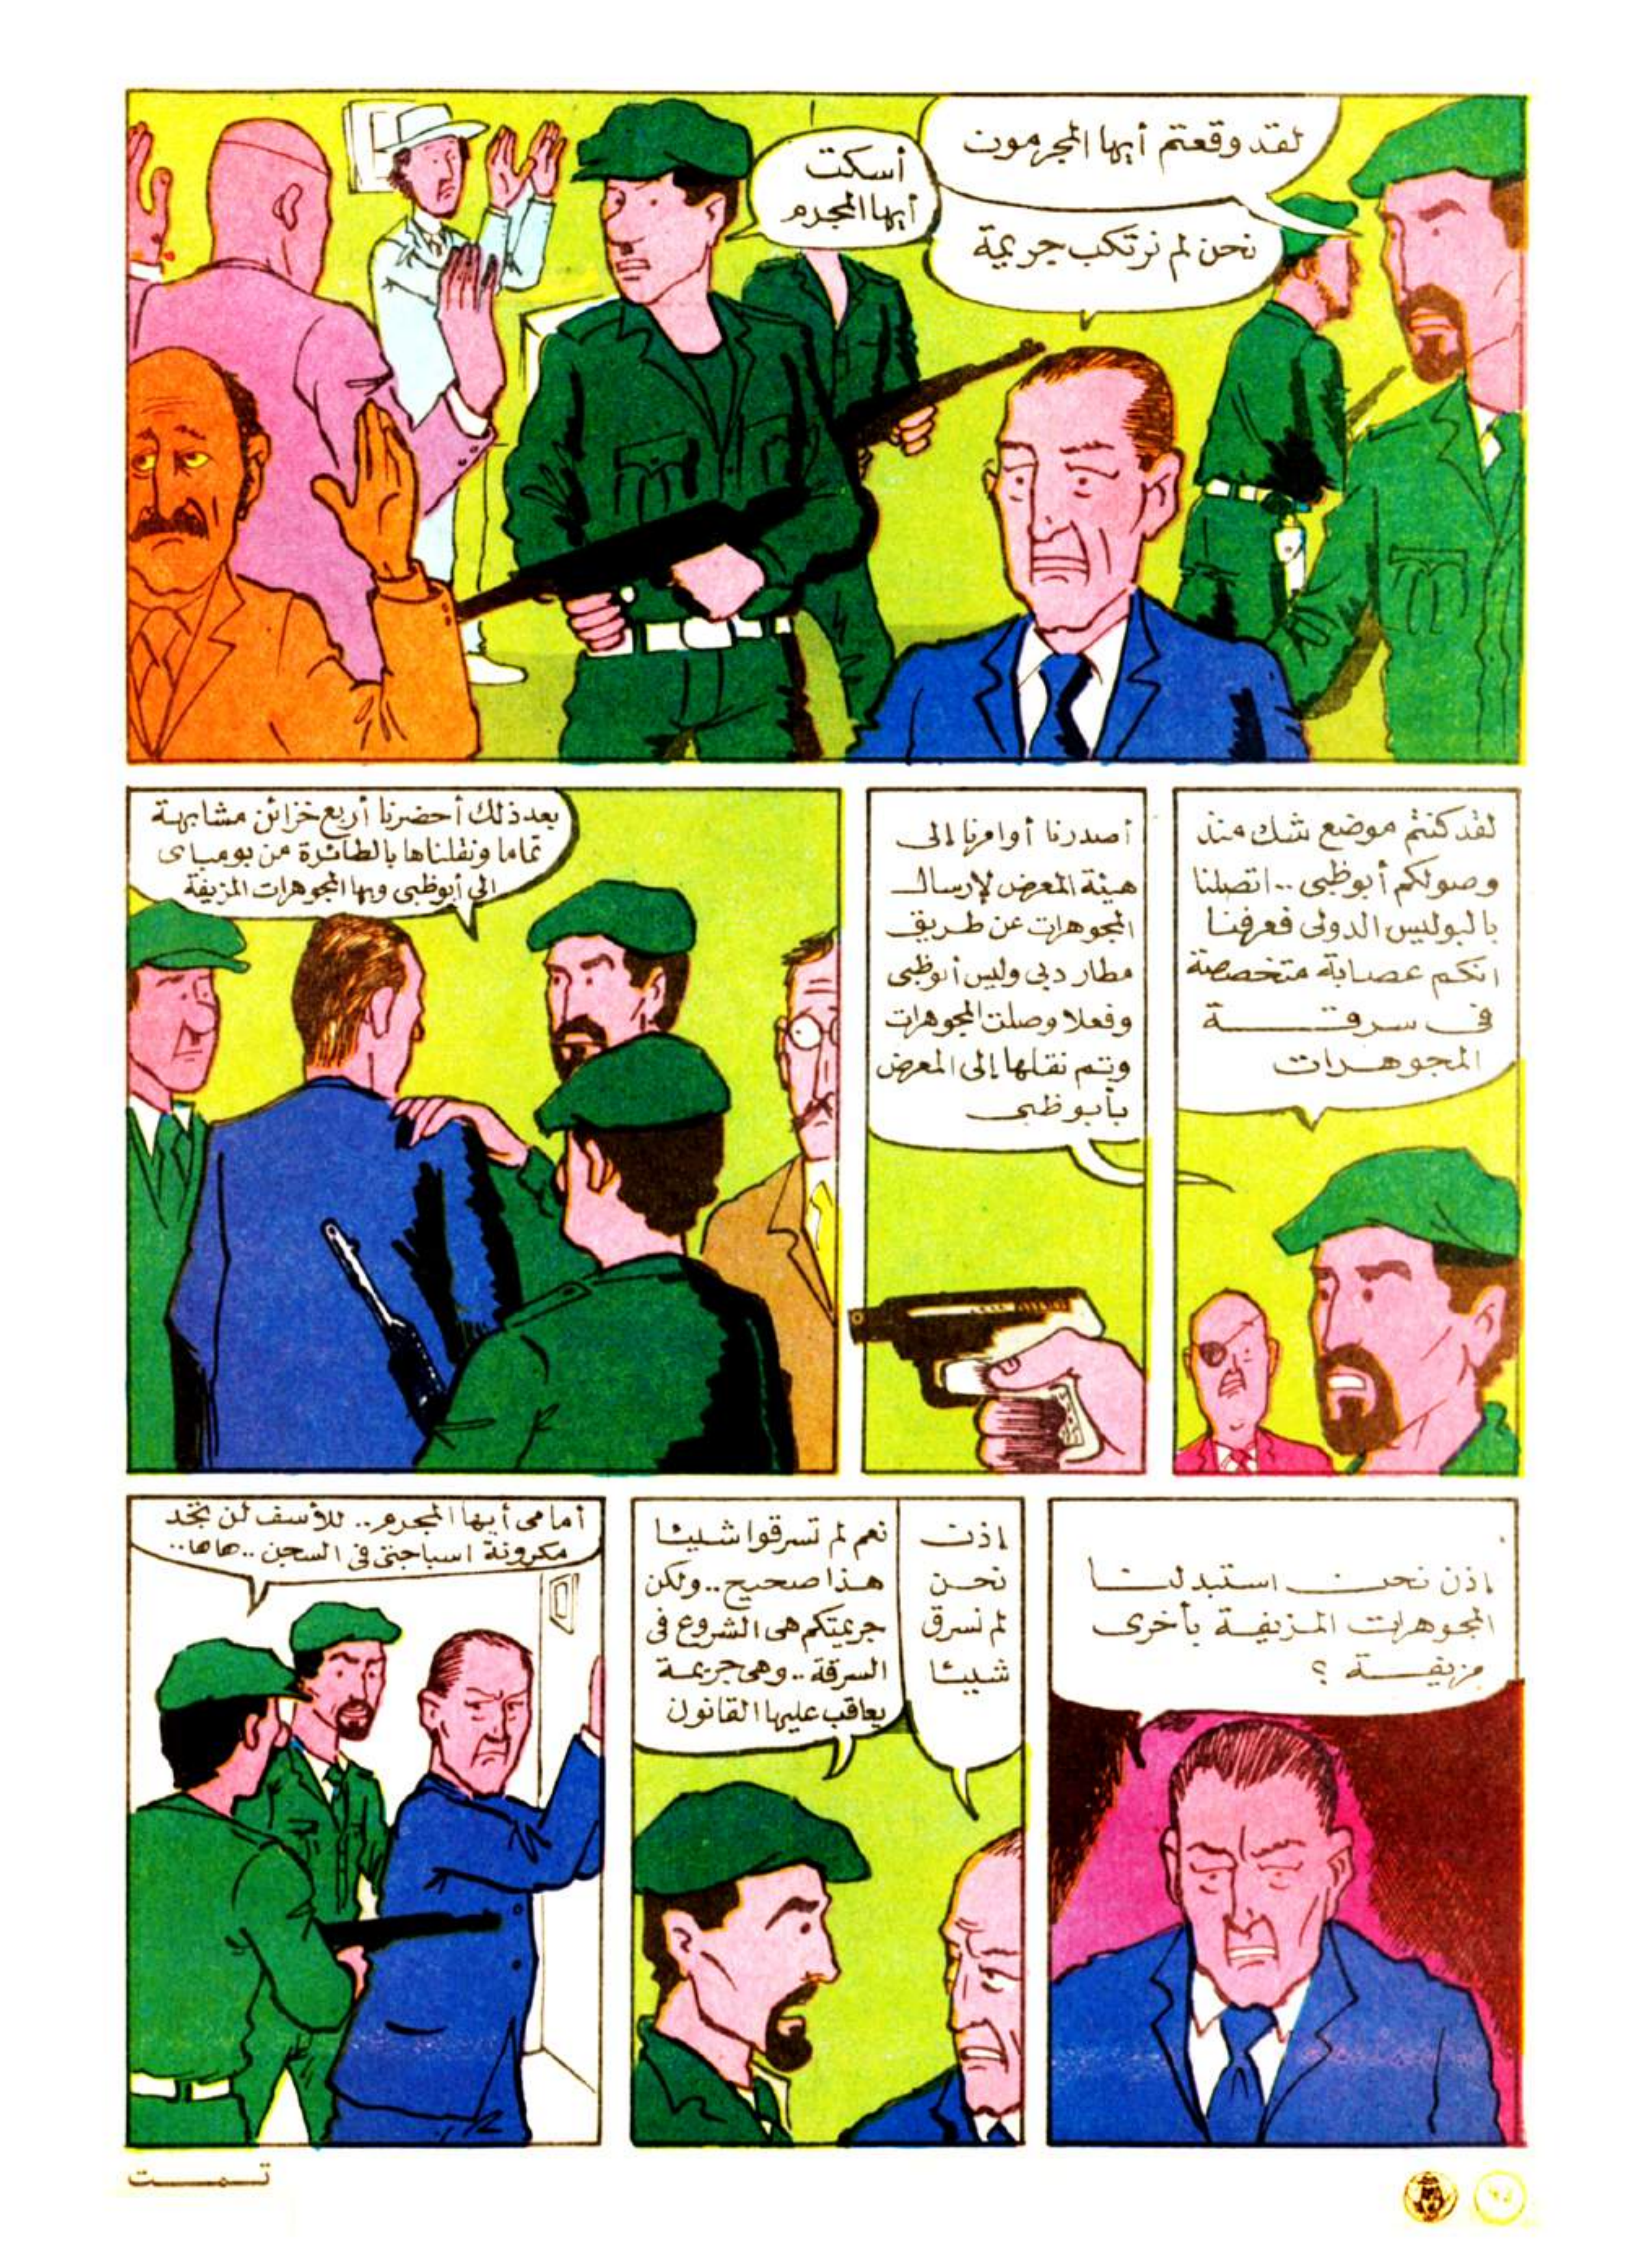 لقد وقعتم أيها المجرمون
نحن لم نرتكب جريمة
أسكت
أيها المجرم
لقد كنتم موضع شك منذ
وصولكم أبوظبى .. اتصلنا
بالبوليس الدولى فعرفنا
انكم عصابة متخصصة
فى سرقة
المجوهرات
أصدرنا أوامرنا إلى
هيئة المعرض لإرسال
المجوهرات عن طريق
مطار دبى وليس أبوظبى
وفعلا وصلت المجوهرات
وتم نقلها إلى المعرض
بأبوظبى
بعد ذلك أحضرنا أربع خزائن مشابهة
تماما ونقلناها بالطائرة من بومباى
الى أبوظبى وبها المجوهرات المزيفة
إذن نحن استبدلنا
المجوهرات المزيفة بأخرى
مزيفة ؟
إذن
نحن
لم نسرق
شيئا
نعم لم تسرقوا شيئا
هذا صحيح .. ولكن
جريمتكم هى الشروع فى
السرقة .. وهى جريمة
يعاقب عليها القانون
أمامى أيها المجرم .. للأسف لن تجد
مكرونة اسباجتى فى السجن .. ها ها ..
تمت